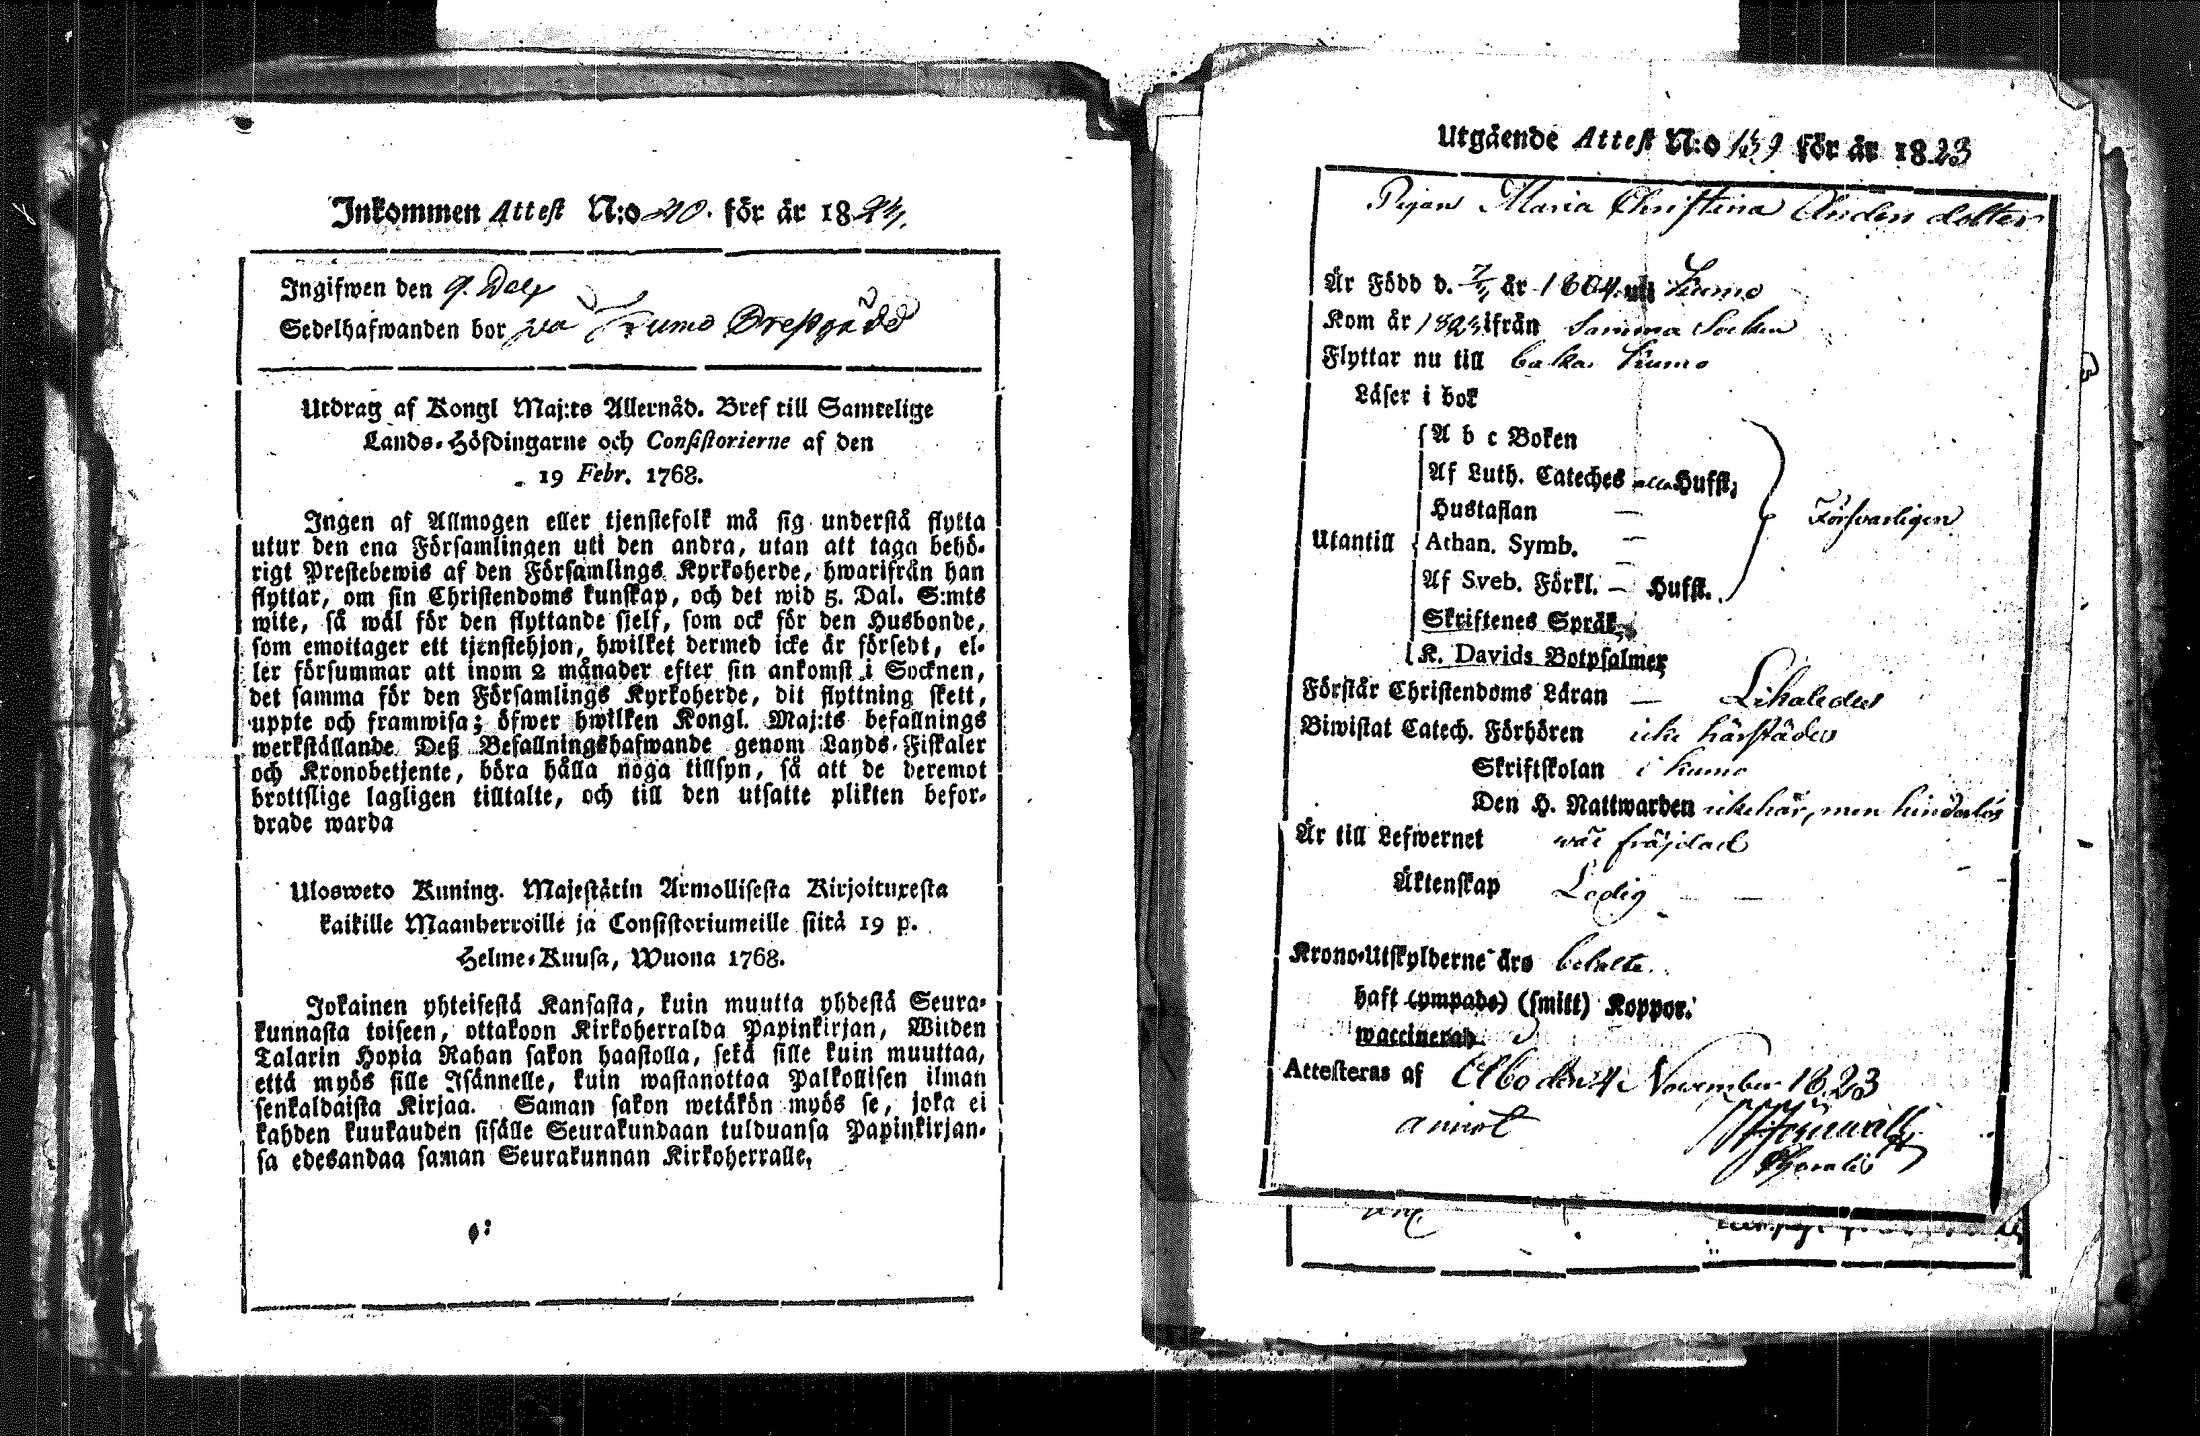 Inkommen Attest N:o 20. för år 1824.
Ingifwen den 9.
Sedelhafwanden bor på Kumo Prestgård
Utdrag af Kongl Maj:ts Allernåd. Bref till Samtelige
Lands-Höfdingarne och Consistorierne af den
19 Febr. 1768.
Ingen af Allmogen eller tjenstefolk må sig understå flytta
utur den ena Församlingen uti den andra, utan att taga behö-
rigt Prestebewis af den Församlings Kyrkoherde, hwarifrån han
flyttar, om sin Christendoms kunskap, och det wid 5. Dal. S:mts
wite, så wäl för den flyttande sjelf, som ock för den Husbonde,
som emottager ett tjenstehjon, hwilket dermed icke är försedt, el-
ler försummar att inom 2 månader efter sin ankomst i Socknen,
det samma för den Församlings Kyrkoherde, dit flyttning skett,
uppte och framwisa; öfwer hwilken Kongl. Maj:ts befallnings
werkställande Deß Befallningshafwande genom Lands-Fiskaler
och Kronobetjente, böra hålla noga tillsyn, så att de deremot
brottslige lagligen tilltalte, och till den utsatte plikten befor-
drade warda
Ulosweto Kuning. Majestätin Armollisesta Kirjoituxesta
kaikille Maanherroille ja Consistoriumeille siitä 19 p.
Helme-Kuusa, Wuona 1768.
Jokainen yhteisestä Kansasta, kuin muutta yhdestä Seura-
kunnasta toiseen, ottakoon Kirkoherralda Papinkirjan, Wiiden
Talarin Hopia Rahan sakon haastolla, sekä sille kuin muuttaa,
että myös sille Isännelle, kuin wastanottaa Palkollisen ilman
senkaldaista Kirjaa. Saman sakon wetäkön myös se, joka ei
kahden kuukauden sisälle Seurakundaan tulduansa Papinkirjan-
sa edesandaa saman Seurakunnan Kirkoherralle.
Utgående Attest N:o 159 för år 1823
Pigan Maria Christina Anders dotter
Är Född d. 7/11 år 1804 uti Kumo
Kom år 1823 ifrån samma Socken
Flyttar nu till baka Kumo
Läser i bok
A b c Boken
Af Luth. Cateches alla Hufst;
Hustaflan —
Försvarligen
Utantill Athan. Symb. —
Af Sveb. Förkl. — Hufst.
Skriftenes Språk,
K. Davids Botpsalmer
Förstår Christendoms Läran — Likaledes
Biwistat Catech. Förhören icke härstädes
Skriftskolan i Kumo
Den H. Nattwarden icke här, men hinderlös
Är till Lefwernet wäl fräjdad
Äktenskap Ledig
Krono-Utskylderne äro betalte.
haft (ympade) (smitt) Koppor.
waccinerad
Attesteras af Åbo den 4 November 1823